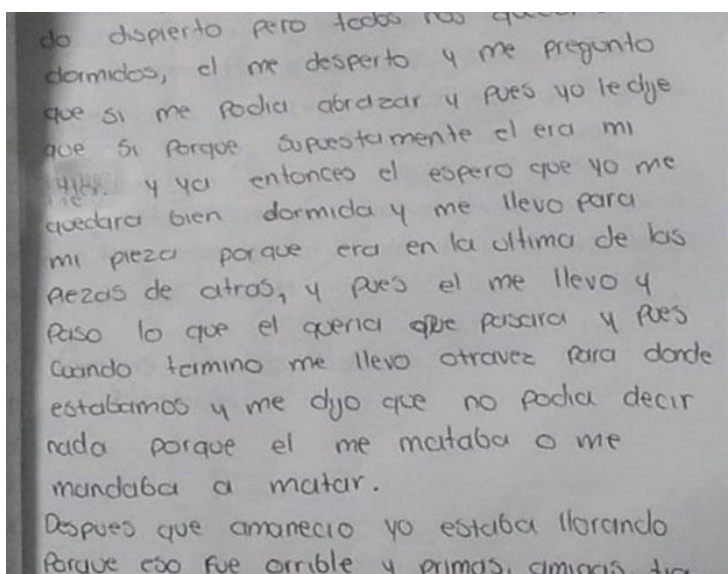 do dispierto pero todos nos
dormidos, el me desperto y me pregunto
que si me podia abrazar y pues yo le dije
que si porque supuestamente el era mi
y ya entonces el espero que yo me
quedara bien dormida y me llevo para
mi pieza porque era en la ultima de las
piezas de atras, y pues el me llevo y
paso lo que el queria que pasara y pues
cuando termino me llevo otravez para donde
estabamos y me dijo que no podia decir
nada porque el me mataba o me
mandaba a matar.
Despues que amanecio yo estaba llorando
Porque eso fue orrible y primas, amigas